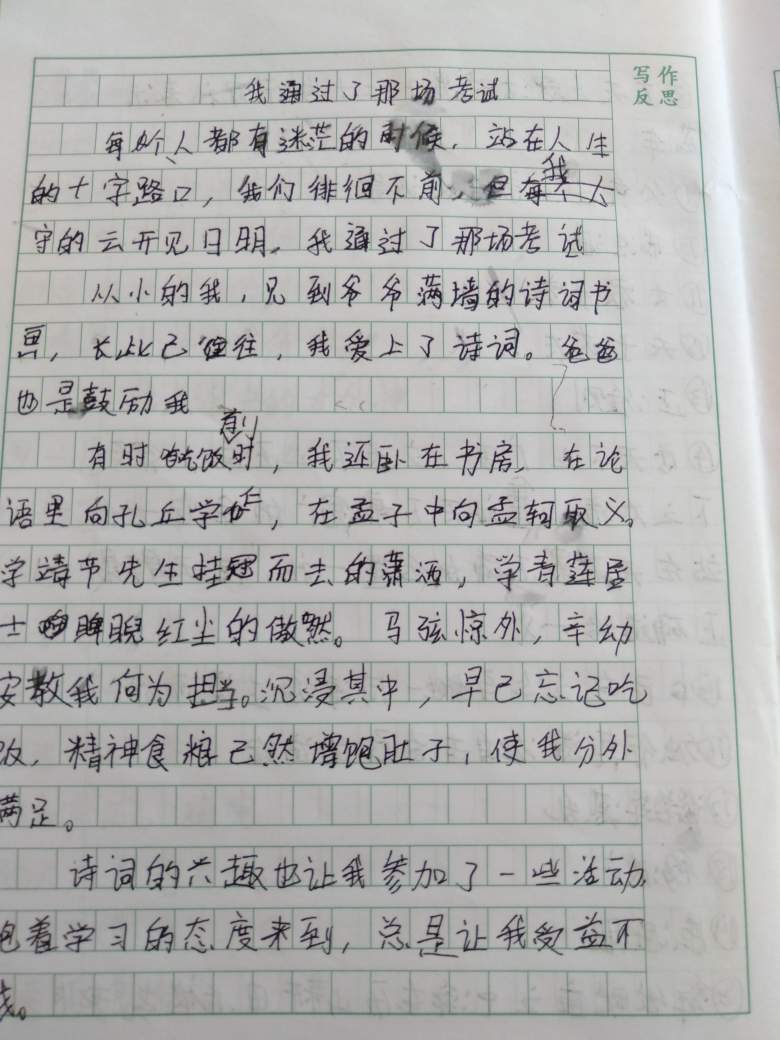 写作
反思
我通过了那场考试
每个人都有迷茫的时候，站在人生
的十字路口，我们徘徊不前，但我
守的云开见日明，我通过了那场考试
从小的我，见到爷爷满墙的诗词书
画，长此已往，我爱上了诗词。爸爸
也是鼓励我
有时吃饭前时，我还卧在书房，在论
语里向孔丘学仁，在孟子中向孟轲取义。
学靖节先生挂冠而去的潇洒，学青莲居
士睥睨红尘的傲然。弓弦惊外，辛幼
安教我何为担当。沉浸其中，早已忘记吃
饭，精神食粮已然增饱肚子，使我分外
满足。
诗词的兴趣也让我参加了一些活动
抱着学习的态度来到，总是让我受益不
浅。